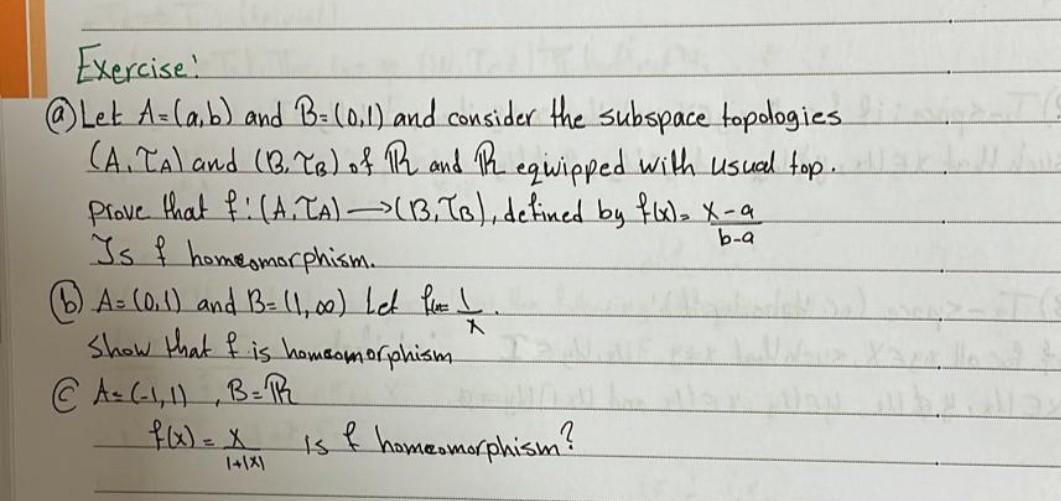 Exercise!
(a) Let A=(a,b) and B=(0,1) and consider the subspace topologies
(A, τ_A) and (B, τ_B) of ℝ and ℝ eqwipped with usual top.
prove that f:(A, τ_A) → (B, τ_B), defined by f(x)= x-a / b-a
Is f homeomorphism.
(b) A=(0,1) and B=(1,∞) Let f(x)= 1/x.
show that f is homeomorphism
(c) A=(-1,1), B=ℝ
f(x) = x / 1+|x| is f homeomorphism?